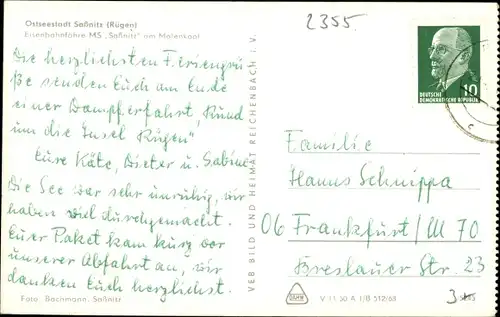 Ostseestadt Saßnitz (Rügen)
Eisenbahnfähre MS „Saßnitz" am Molenkopf
2355
Die herzlichsten Feriengrü-
ße senden Euch am Ende
einer Dampferfahrt „Rund
um die Insel Rügen"
Eure Käte, Dieter u. Sabine
Die See war sehr unruhig, wir
haben viel durchgemacht.
Euer Paket kam kurz vor
unserer Abfahrt an, wir
danken Euch herzlichst.
Foto: Bachmann, Saßnitz
VEB BILD UND HEIMAT REICHENBACH i. V.
10
DEUTSCHE
DEMOKRATISCHE REPUBLIK
Familie
Hanns Schnippa
06 Frankfurt/M 70
Breslauer Str. 23
V 11 50 A 1/B 512/68